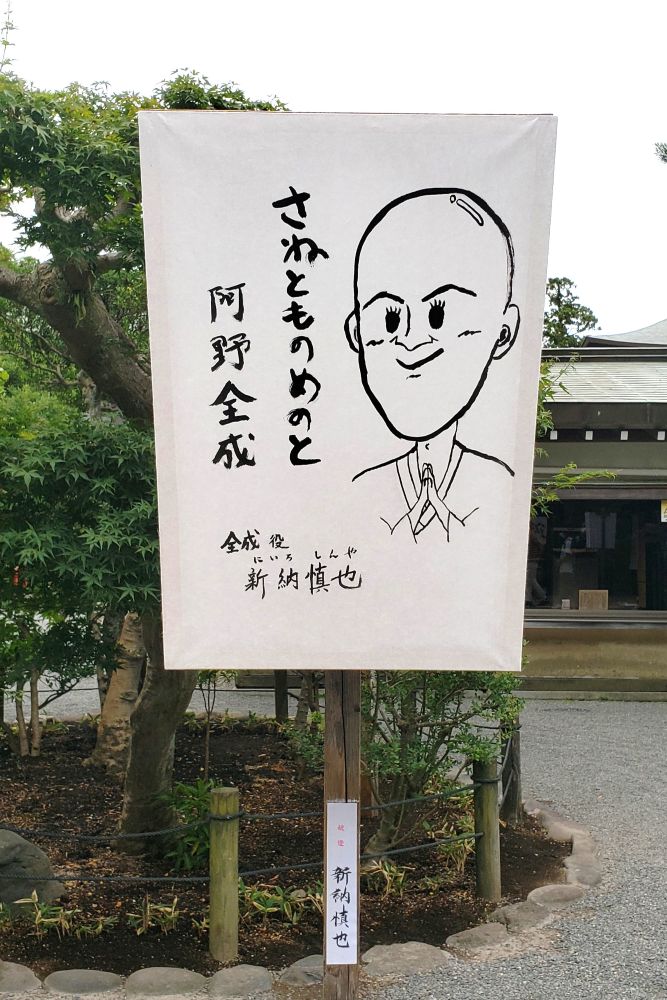 さねとものめのと
阿野全成
全成役
にいろ しんや
新納慎也
献燈
新納慎也